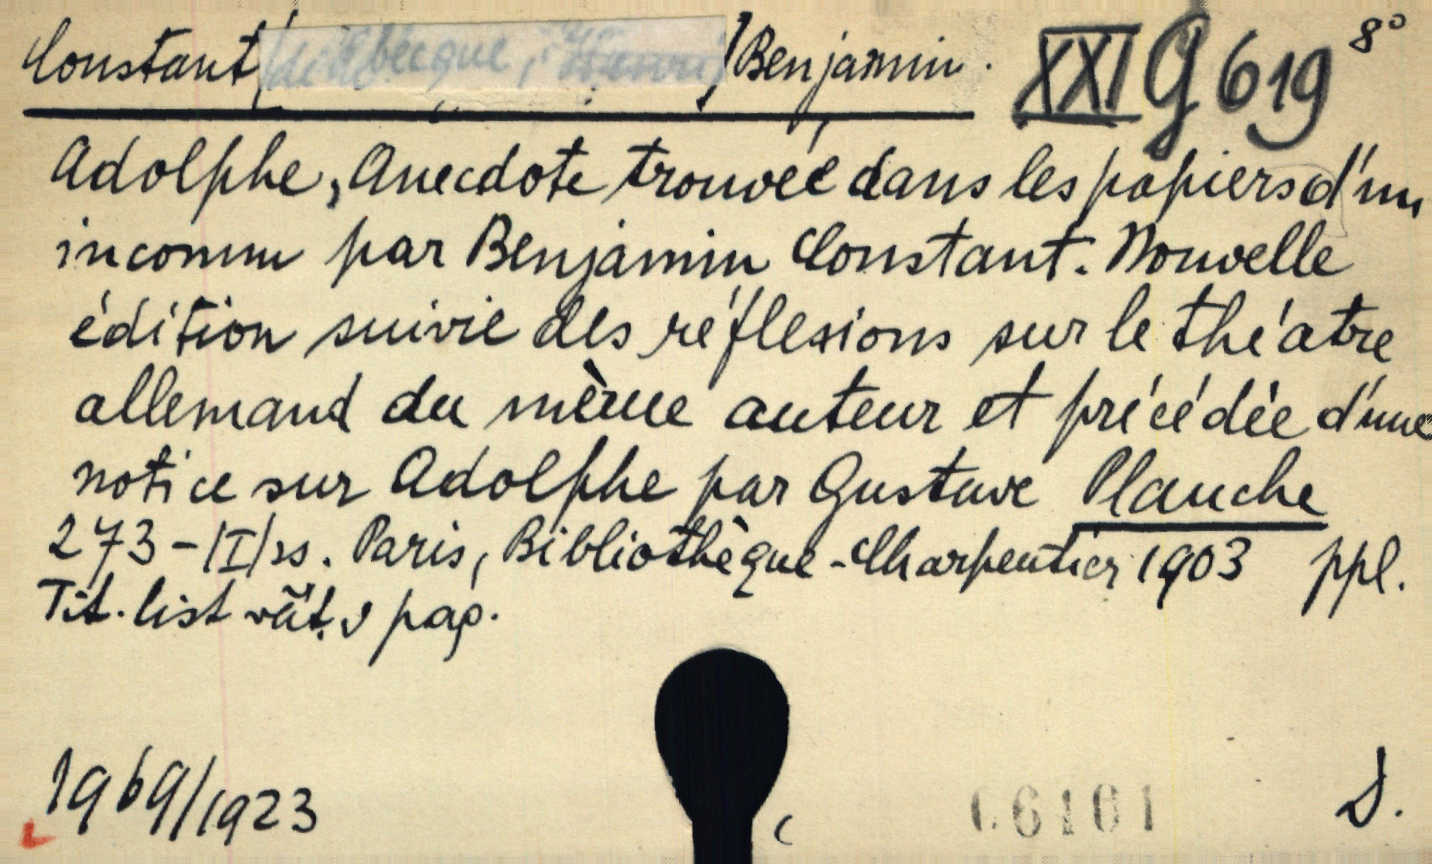 Constant, Benjamin.
XXI G 619 8°
Adolphe, Anecdote trouvée dans les papiers d'un
inconnu par Benjamin Constant. Nouvelle
édition suivie des réflexions sur le théatre
allemand du mème auteur et précédée d'une
notice sur Adolphe par Gustave Planche
273-/I/ss. Paris, Bibliothèque-Charpentier 1903 ppl.
Tit. list vät. v pag.
1969/1923
06101
S.